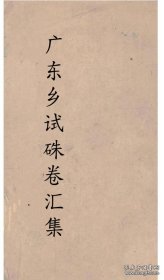 广东乡试硃卷汇集